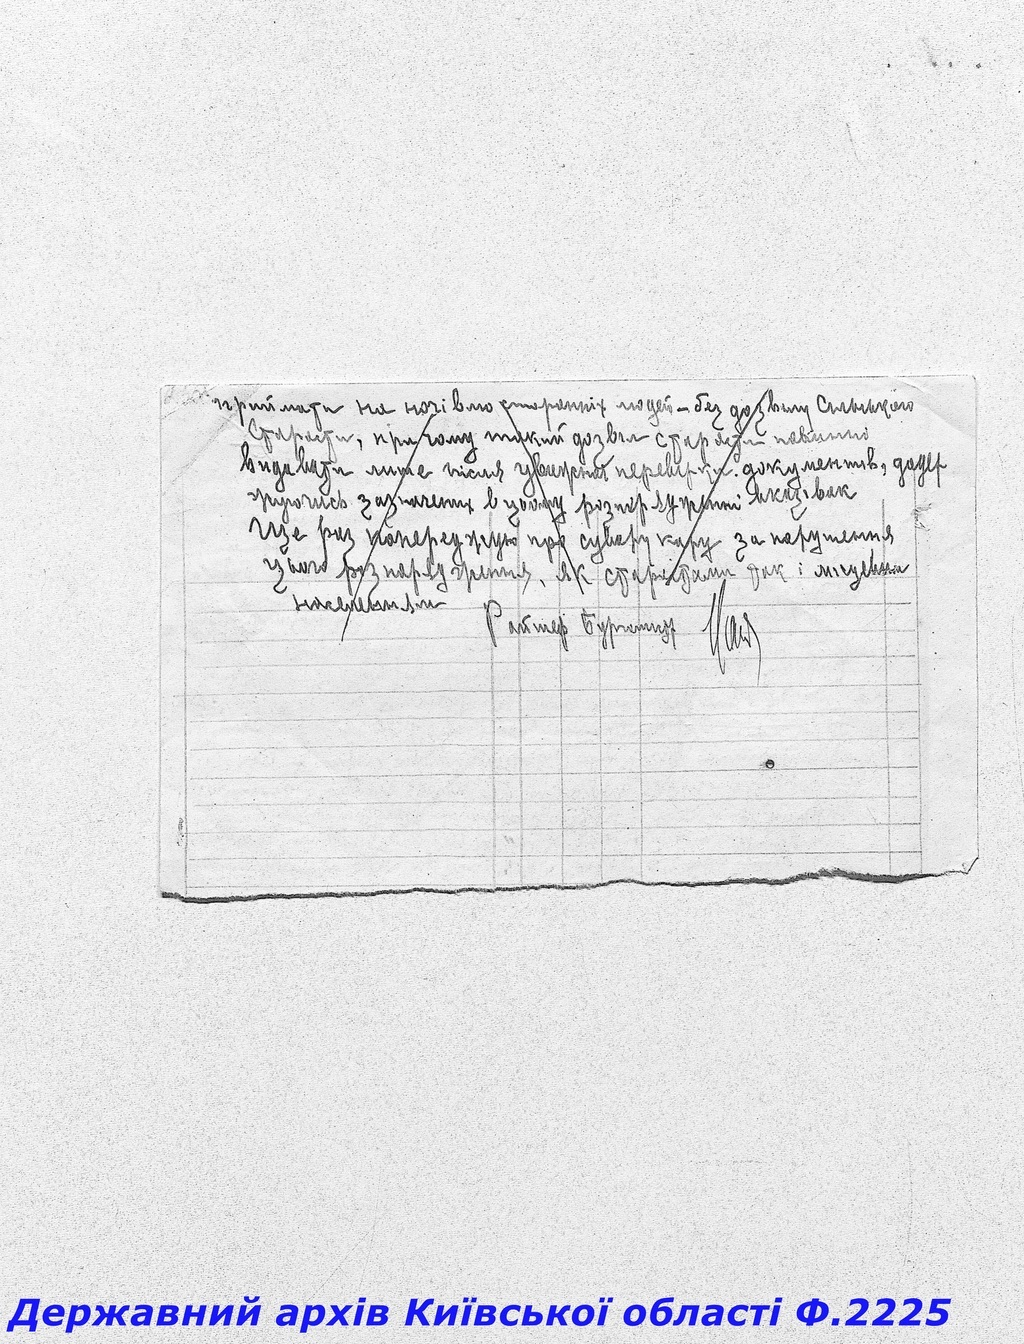 приймати на ночівлю сторонніх людей – без дозволу Сільського
Старости, при чому такий дозвіл старости повинні
видавати лише після уважної перевірки документів, додер
жуючись зазначених в цьому розпорядженні вказівок
Ще раз попереджую про сувору кару за порушення
цього розпорядження, як старостами так і місцевим
населенням
Райшеф Бургомістр
Державний архів Київської області Ф.2225